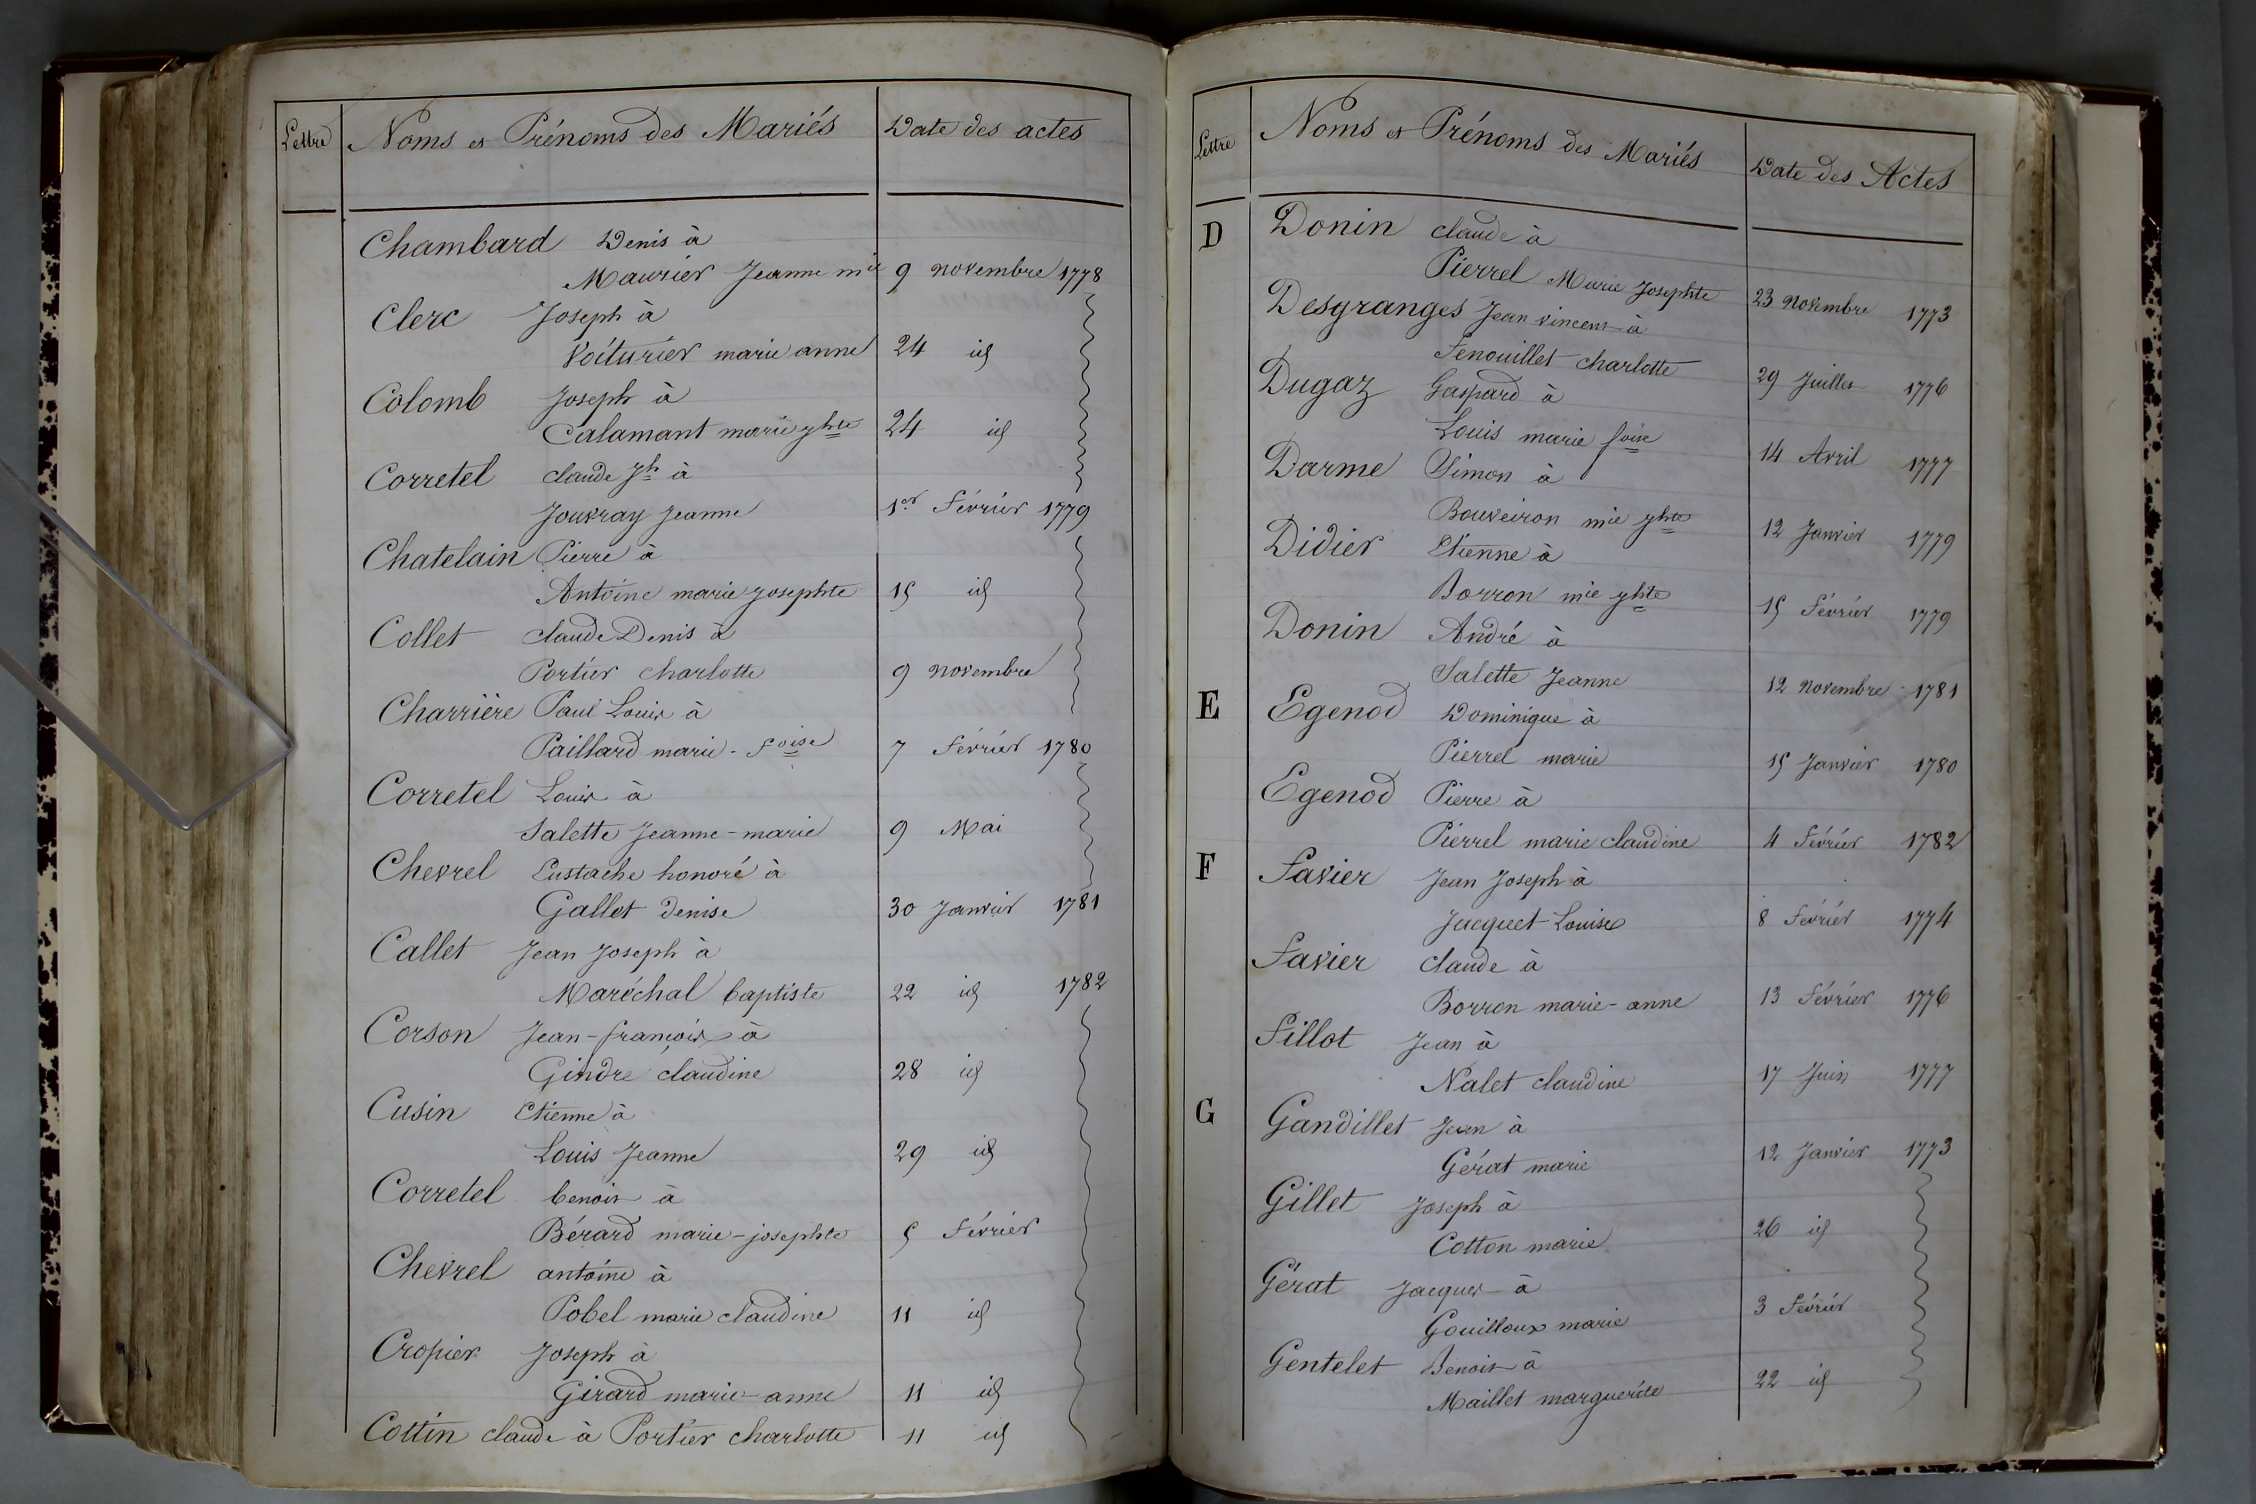 Lettre Noms et Prénoms des Mariés Date des actes
Chambard Denis à
Maurier Jeanne mie 9 novembre 1778
Clerc Joseph à
Voiturier marie anne 24 id
Colomb Joseph à
Calamant marie jhte 24 id
Corretel claude Jh à
Jouvray Jeanne 1er Février 1779
Chatelain Pierre à
Antoine marie josephte 15 id
Collet claude Denis à
Portier charlotte 9 novembre
Charrière Paul Louis à
Paillard marie-foise 7 Février 1780
Corretel Louis à
Salette Jeanne-marie 9 Mai
Chevrel Eustache honoré à
Gallet denise 30 Janvier 1781
Callet Jean Joseph à
Maréchal baptiste 22 id 1782
Corson Jean-françois à
Gindre claudine 28 id
Cusin Etienne à
Louis Jeanne 29 id
Corretel benoit à
Bérard marie-josephte 5 Février
Chevrel antoine à
Pobel marie claudine 11 id
Cropier Joseph à
Girard marie-anne 11 id
Cottin claude à Portier charlotte 11 id
Lettre Noms et Prénoms des Mariés Date des Actes
D Donin claude à
Pierrel Marie Josephte 23 Novembre 1773
Desgranges Jean vincent à
Fenouillet charlotte 29 Juillet 1776
Dugaz Gaspard à
Louis marie foise 14 Avril 1777
Darme Simon à
Bouveiron mie jhte 12 Janvier 1779
Didier Etienne à
Borron mie jhte 15 Février 1779
Donin André à
Salette Jeanne 12 Novembre 1781
E Egenod Dominique à
Pierrel marie 15 Janvier 1780
Egenod Pierre à
Pierrel marie claudine 4 Février 1782
F Favier Jean Joseph à
Jacquet Louise 8 Février 1774
Favier claude à
Borron marie-anne 13 Février 1776
Fillot Jean à
Nalet claudine 17 Juin 1777
G Gandillet Jean à
Gérat marie 12 Janvier 1773
Gillet Joseph à
Cotton marie 26 id
Gérat Jacques à
Gouilloux marie 3 Février
Gentelet Benoit à
Maillet marguerite 22 id